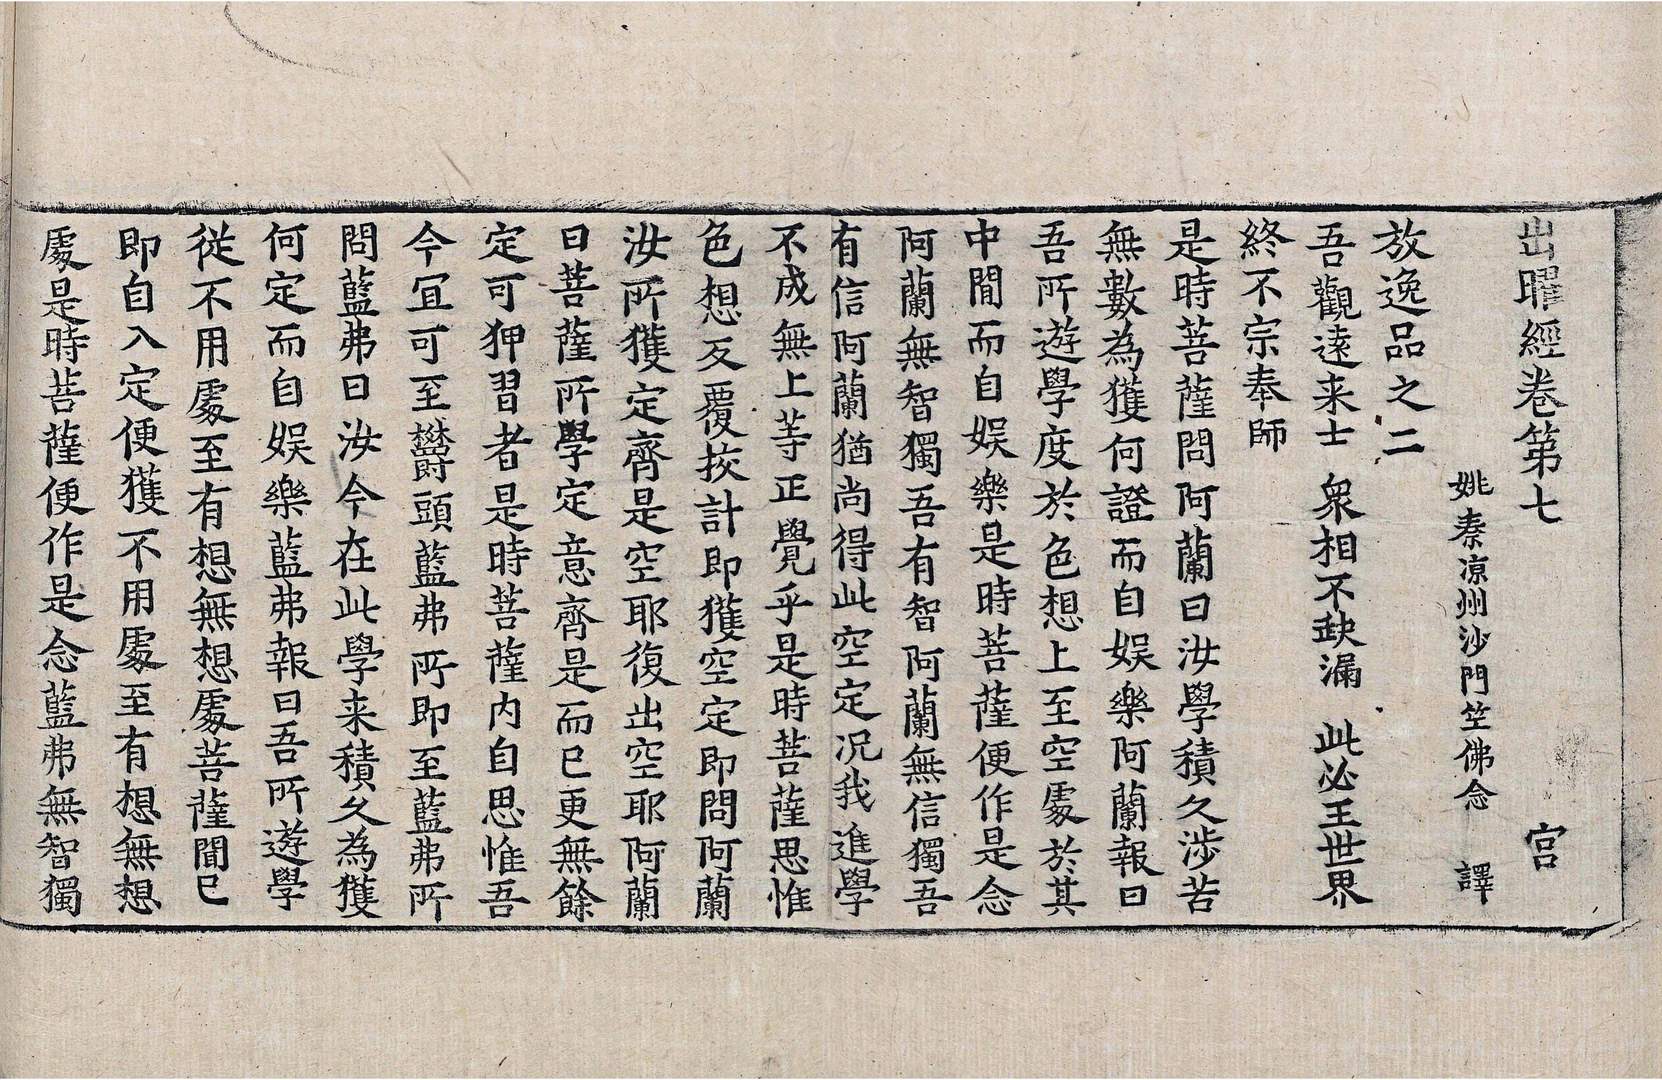 出曜經卷第七 宫
姚秦凉州沙門竺佛念 譯
放逸品之二
吾觀遠来士 衆相不缺漏 此必王世界
終不宗奉師
是時菩薩問阿蘭曰汝學積久涉苦
無數為獲何證而自娱樂阿蘭報曰
吾所遊學度於色想上至空處於其
中間而自娱樂是時菩薩便作是念
阿蘭無智獨吾有智阿蘭無信獨吾
有信阿蘭猶尚得此空定况我進學
不成無上等正覺乎是時菩薩思惟
色想反覆挍計即獲空定即問阿蘭
汝所獲定齊是空耶復出空耶阿蘭
曰菩薩所學定意齊是而已更無餘
定可狎習者是時菩薩内自思惟吾
今冝可至欝頭藍弗所即至藍弗所
問藍弗曰汝今在此學来積久為獲
何定而自娱樂藍弗報曰吾所遊學
從不用處至有想無想處菩薩聞已
即自入定便獲不用處至有想無想
處是時菩薩便作是念藍弗無智獨